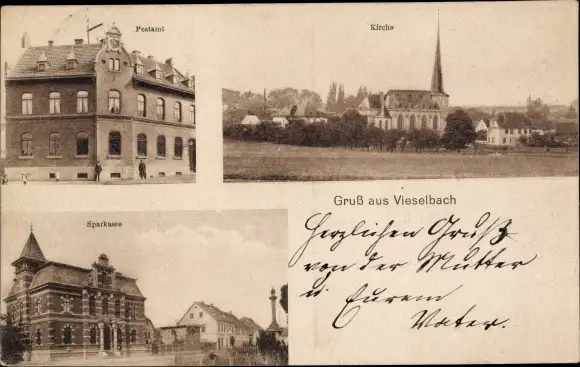 Postamt
Kirche
Gruß aus Vieselbach
Sparkasse
Herzlichen Gruß
von der Mutter
u. Eurem
Vater.